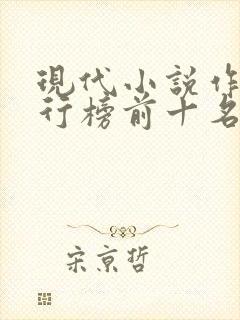 現代小説作
行榜前十名
宋京哲